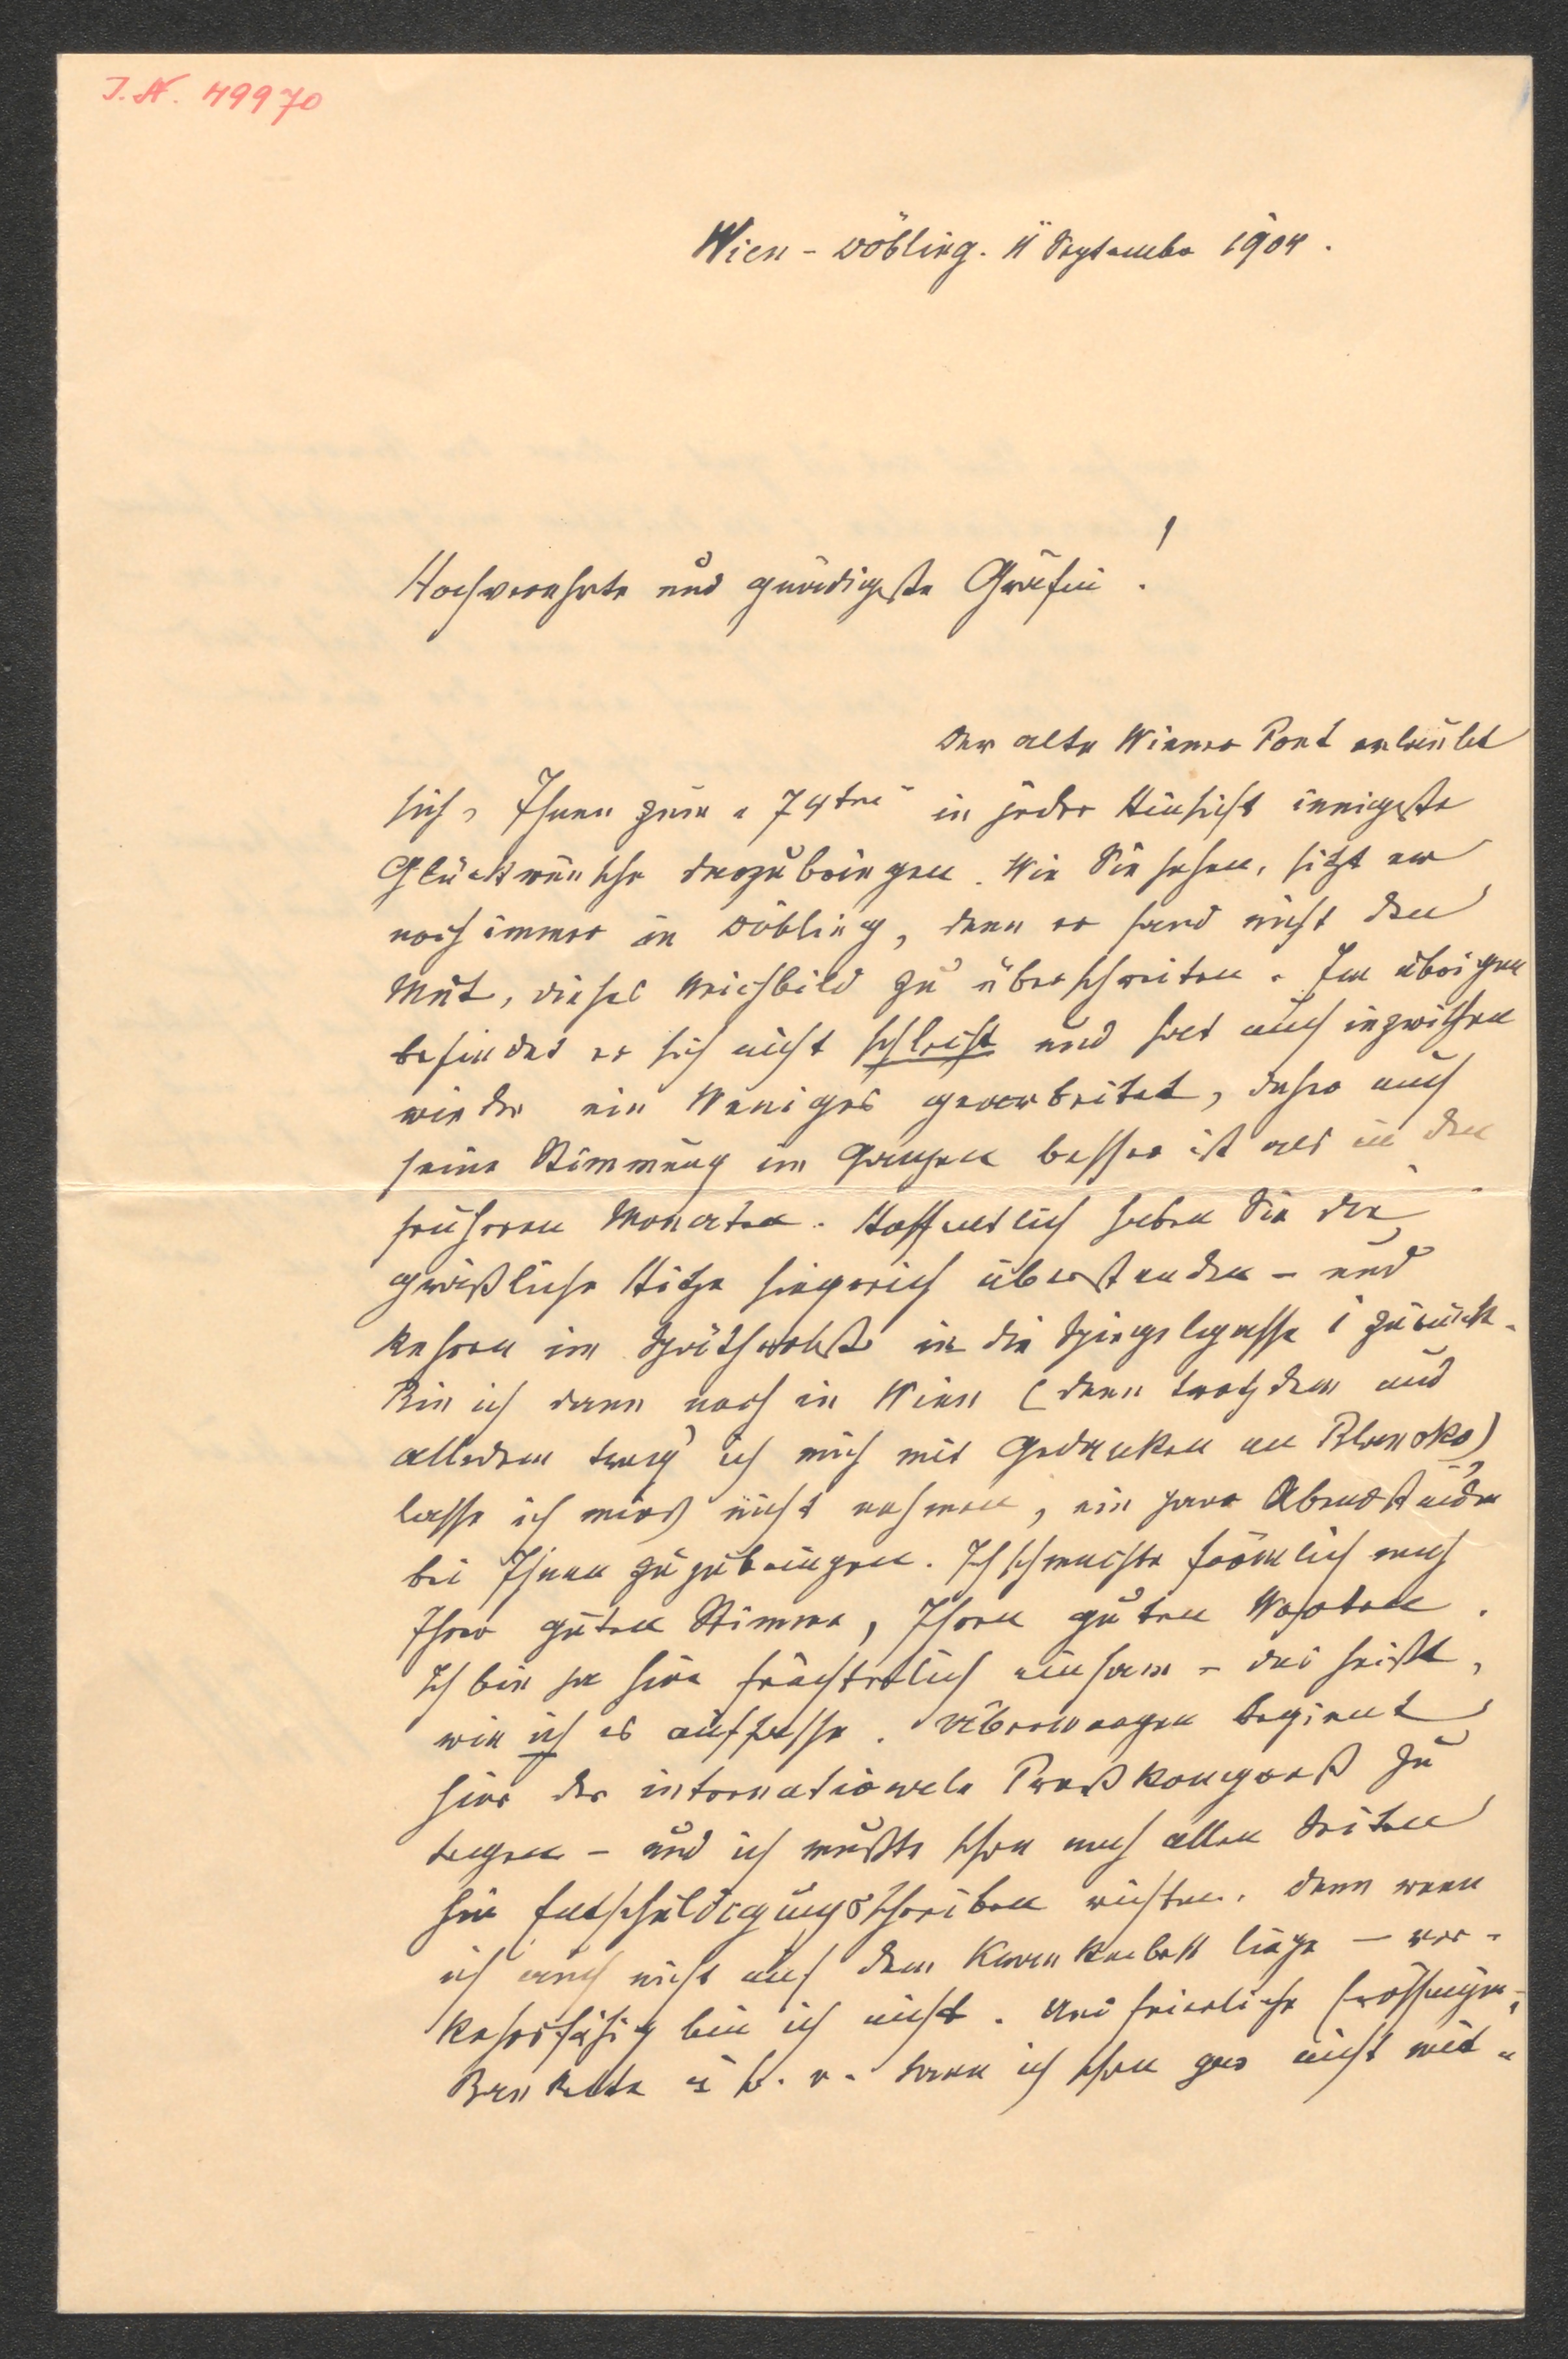 I.N. 49970
Wien - Döbling. 11 September 1904.
Hochverehrte und gnädigste Gräfin!
Der alte Wiener Poet erlaubt
sich, Ihnen zum 74ten in jeder Hinsicht innigste
Glückwünsche darzubringen. Wie Sie sehen, sitzt er
noch immer in Döbling, denn er fand nicht den
Mut, dieses Weichbild zu überschreiten. Im übrigen
befindet er sich nicht schlecht und hat auch inzwischen
wieder ein Weniges gearbeitet, daher auch
seine Stimmung im Ganzen besser ist als in den
früheren Monaten. Hoffentlich haben Sie die
gräßliche Hitze siegreich überstanden - und
kehren im Spätherbst in die Spiegelgasse 1 zurück.
Bin ich dann noch in Wien (denn trotzdem und
alledem trag' ich mich mit Gedanken an Blansko)
lasse ich mir's nicht nehmen, ein paar Abendstunden
bei Ihnen zuzubringen. Ich schmachte förmlich nach
Ihrer guten Stimme, Ihren guten Worten.
Ich bin ja hier fürchterlich einsam - das heißt,
wie ich es auffasse. Übermorgen beginnt
hier der internationale Preßkongreß zu
tagen - und ich mußte schon nach allen Seiten
hin Entschuldigungsschreiben richten. Denn wenn
ich auch nicht auf dem Krankenbett liege - ver-
kehrsfähig bin ich nicht. feierliche Eröffnungen,
Bankette u. s. w. kann ich schon gar nicht mit-